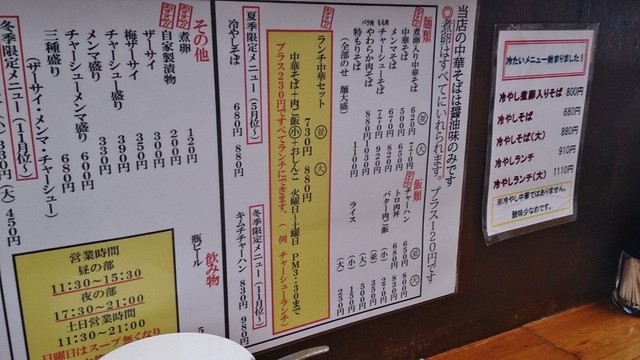 当店の中華そばは醤油味のみです
◎煮卵はすべてにいれられます。プラス120円です
麺類
煮卵入り中華そば 620円 770円
中華そば 500円
メンマそば
チャーシューそば
やわらか肉そば
特もりそば 1100円
(全部のせ 麺大盛)
飯類
チャーハン 650円 800円
トロ肉丼 680円
バター肉ご飯
ライス
(小) 150円
(大) 250円
ランチ中華セット 730円 880円
中華そば+肉ご飯(小)+おしんこ 火曜日~土曜日 PM3:30まで
プラス230円ですべてランチにできます。(例 チャーシューランチ)
夏季限定メニュー(5月位~)
冷やしそば 680円 880円
冬季限定メニュー(11月位~)
キムチチャーハン 830円 980円
その他
煮卵 120円
自家製漬物 200円
ザーサイ 300円
梅ザーサイ 350円
チャーシュー盛り 390円
メンマ盛り 330円
三種盛り 600円
(ザーサイ・メンマ・チャーシュー)
冬季限定メニュー(11月位~)
(大) 450円
飲み物
瓶ビール
営業時間
昼の部
11:30~15:30
夜の部
17:30~21:00
土日営業時間
11:30~21:00
日曜日はスープ無くなり
冷たいメニュー始まりました!
冷やし煮卵入りそば 800円
冷やしそば 680円
冷やしそば(大) 880円
冷やしランチ 910円
冷やしランチ(大) 1110円
※冷やし中華ではありません。
酸味少なめです。